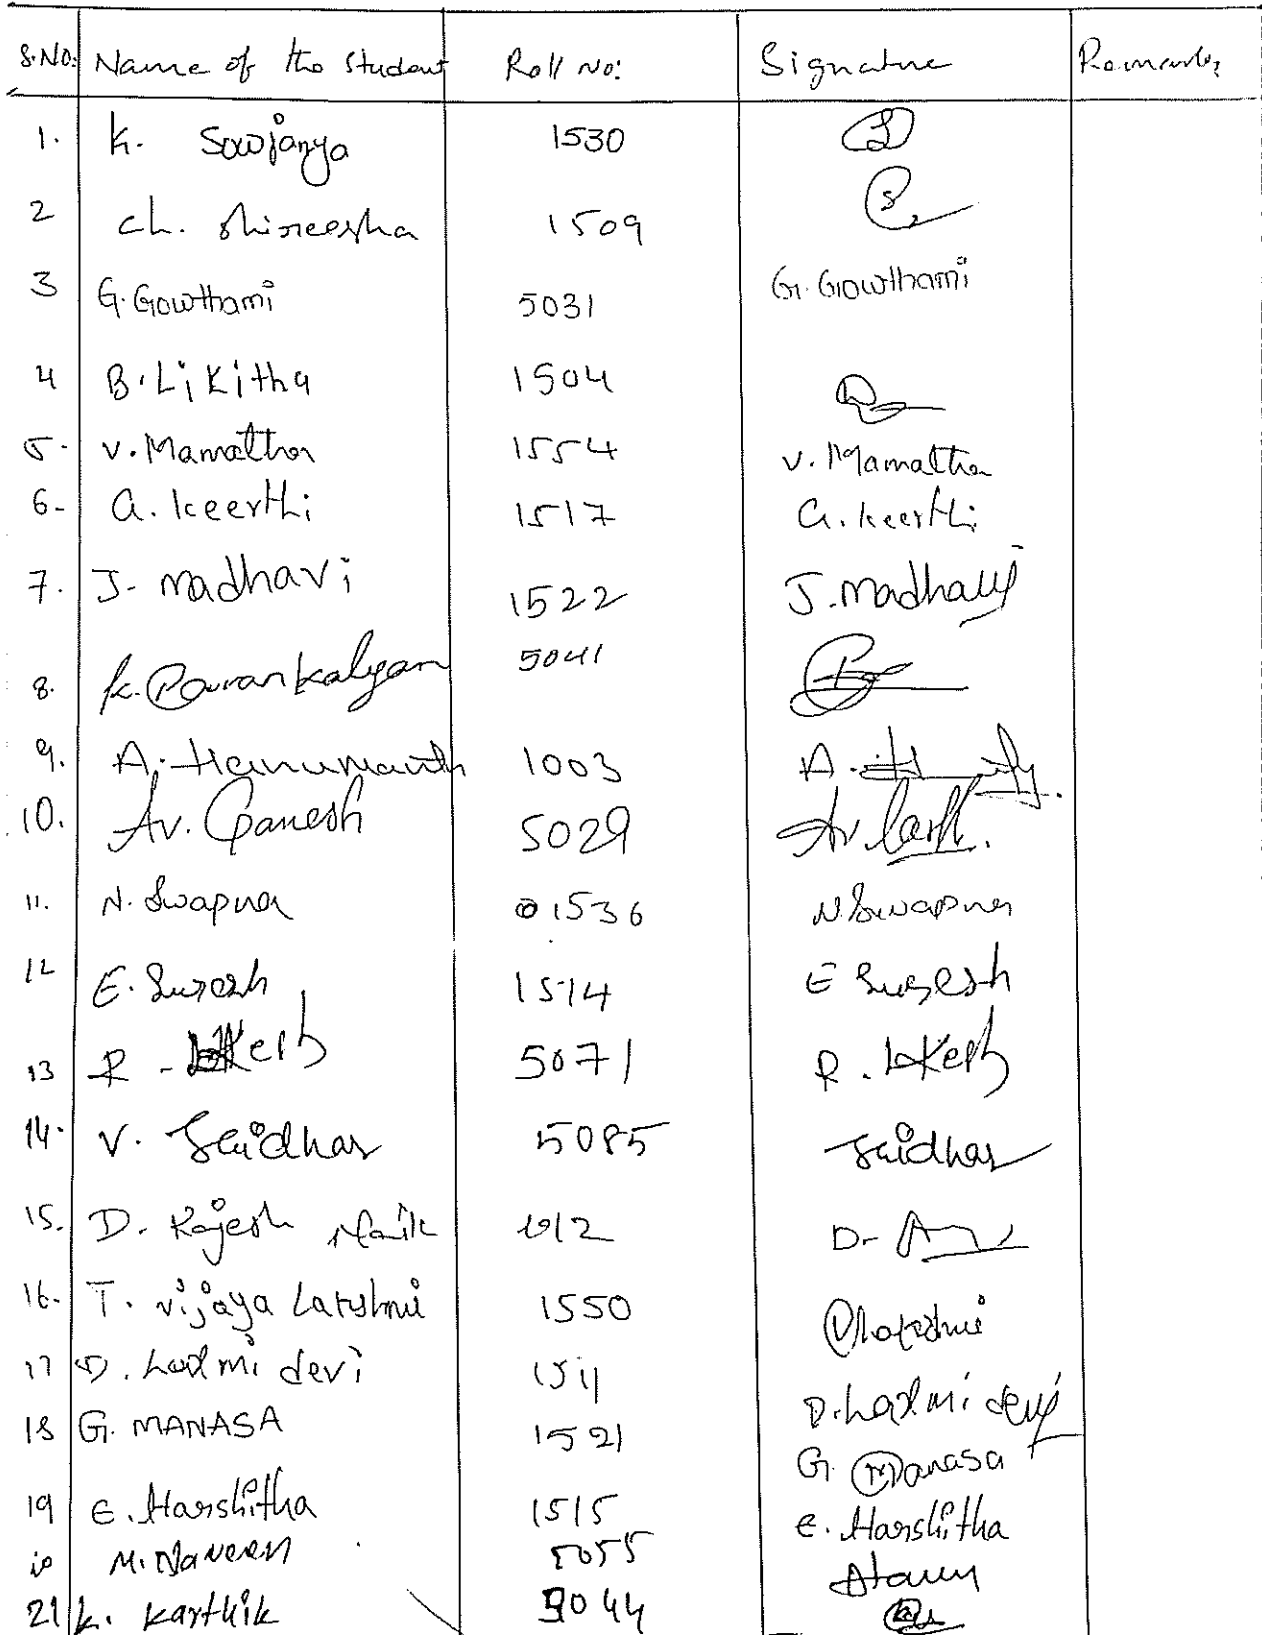 S.No: Name of the Student Roll No: Signature Remarks
1. K. Sowjanya 1530
2 Ch. Shireesha 1509
3 G. Gowthami 5031 G. Gowthami
4 B. Likitha 1504
5. V. Mamatha 1554 V. Mamatha
6- G. Keerthi 1517 G. Keerthi
7. J. madhavi 1522 J. madhavi
8. K. Pavan kalyan 5041
9. A. Hanumanth 1003
10. Av. Ganesh 5029
11. N. Swapna 1536 N. Swapna
12 E. Suresh 1514 E Suresh
13 R. Lokesh 5071 R. Lokesh
14. V. Saidhar 5085 Saidhar
15. D. Rajesh Naik 1012
16- T. vijaya Lakshmi 1550 V Lakshmi
17 D. Laxmi devi 1511 D. Laxmi devi
18 G. MANASA 1521 G. Manasa
19 E. Harshitha 1515 E. Harshitha
20 M. Naveen 5055
21 K. Karthik 5044